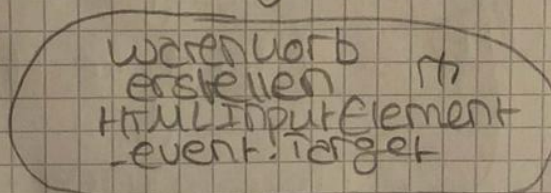 warenuorb
erstellen
HTMLInputElement
-event.Target